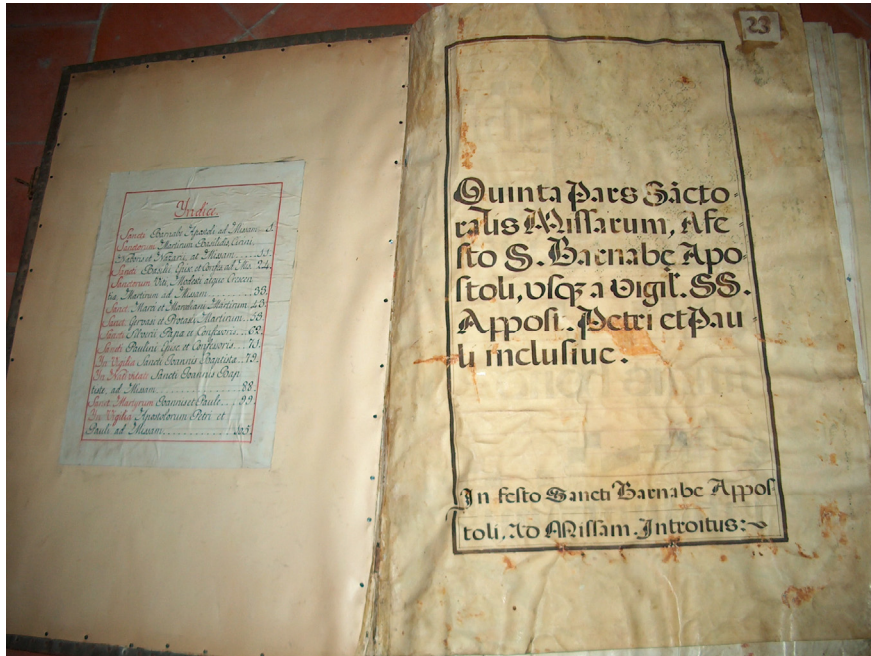 Yndice.
Sancti Barnabe Apostoli ad Missam
Sanctorum Martirum Basilidis, Cirini,
Naboris et Nazarii, ad Missam
Sancti Basilii Epis: et Confes: ad Mis. 24.
Sanctorum Viti, Modesti atque Crescen
tie, Martirum ad Missam 38.
Sanct. Marci et Marceliani Martirum. 43.
Sanct. Gervasi et Protasi Martirum. 53.
Sancti Silverii Papæ et Confesoris
Sancti Paulini Episc: et Confesoris. 71.
In Vigilia Sancti Joannis Baptista. 79.
In Nativitati Sancti Joannis Bap
tiste, ad Missam 88.
Sanct. Martyrum Joannis et Paulo. 99.
In Vigilia Apostolorum Petri et
Pauli ad Missam 103.
23
Quinta Pars Sãcto
ralis Missarum, Afe
sto S. Barnabę Apo
stoli, vsqȝ a vigil. SS.
Appost. Petri et Pau
li inclusiue.
In festo Sancti Barnabe Appos
toli, Ad Missam. Introitus:~